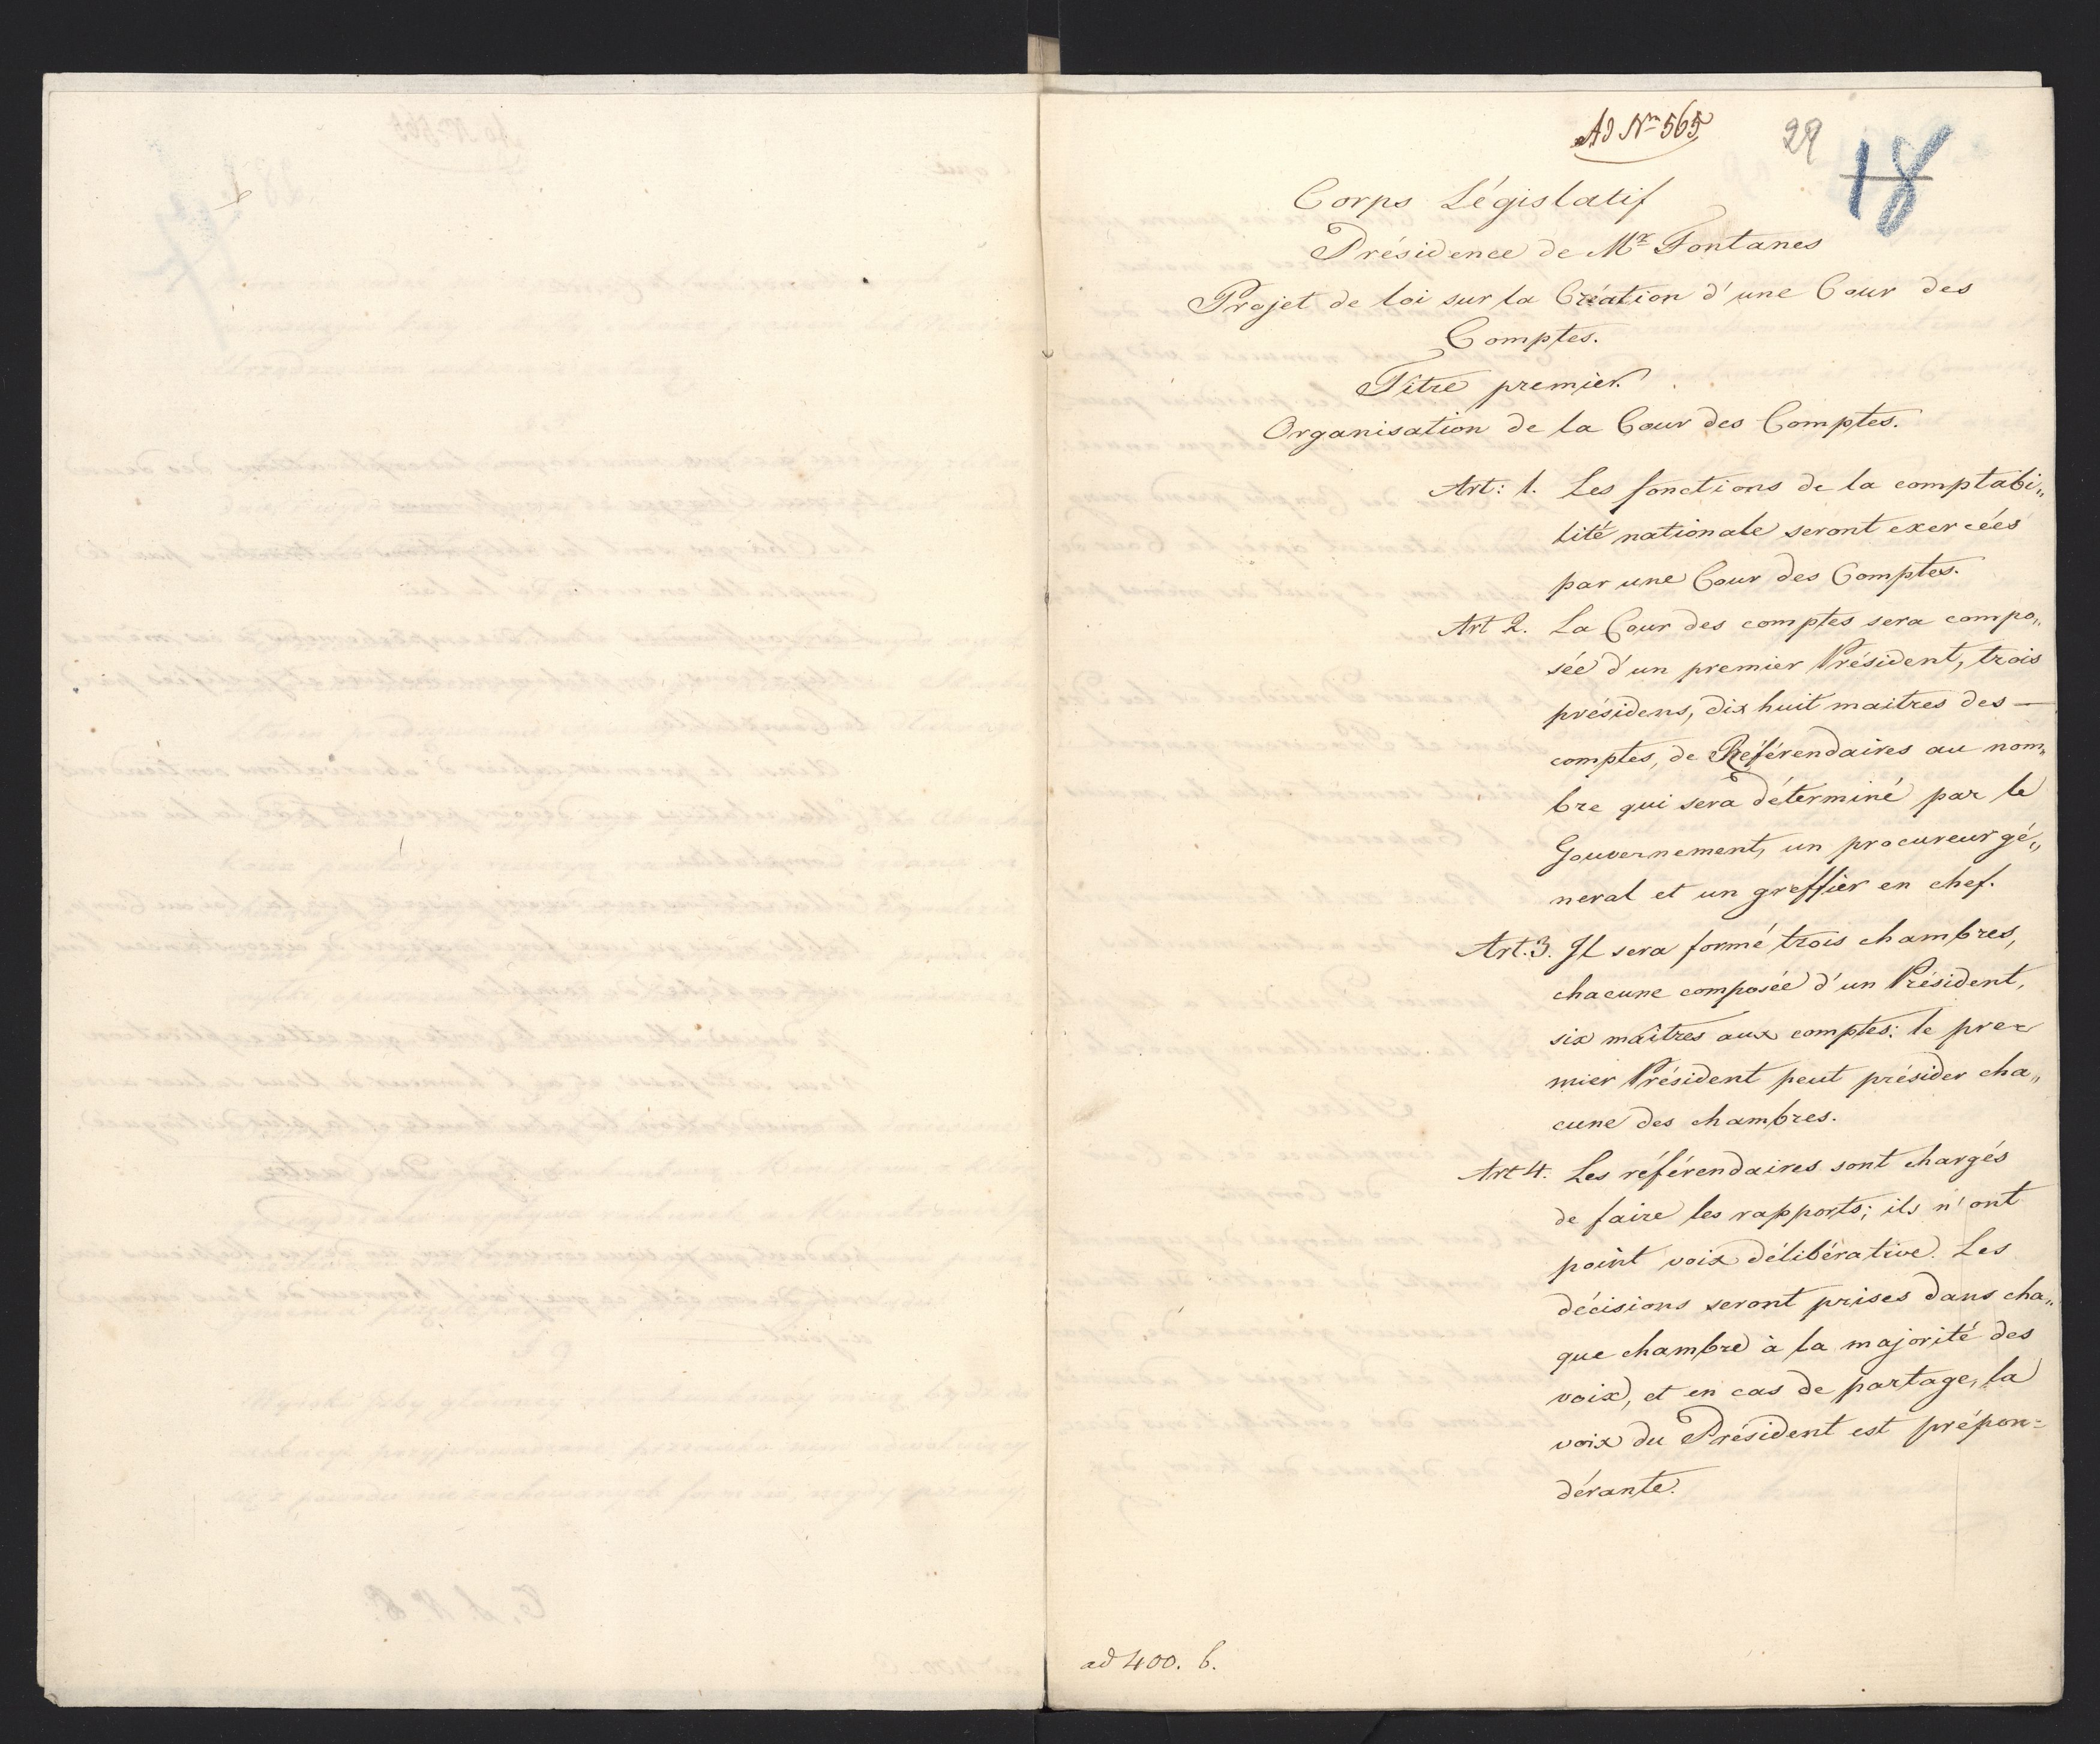 Ad Nr 565
29
18
Corps Législatif
Présidence de Mr Fontanes
Projet de loi sur la Création d'une Cour des
Comptes.
Titre premier.
Organisation de la Cour des Comptes.
Art: 1. Les fonctions de la comptabi„
lité nationale seront exercées
par une Cour des Comptes.
Art 2. La Cour des comptes sera compo„
sée d'un premier Président, trois
présidens, dix huit maitres des —
comptes, de Référendaires au nom„
bre qui sera déterminé par le
Gouvernement, un procureur gé„
neral et un greffier en chef.
Art. 3. Il sera formé trois chambres,
chacune composée d'un Président,
six maîtres aux comptes: le pre-
mier Président peut présider cha„
cune des chambres.
Art 4. Les référendaires sont chargés
de faire les rapports; ils n'ont
point voix délibérative. Les
décisions seront prises dans cha„
que chambre à la majorité des
voix, et en cas de partage, la
voix du Président est prépon=
dérante.
ad 400. b.